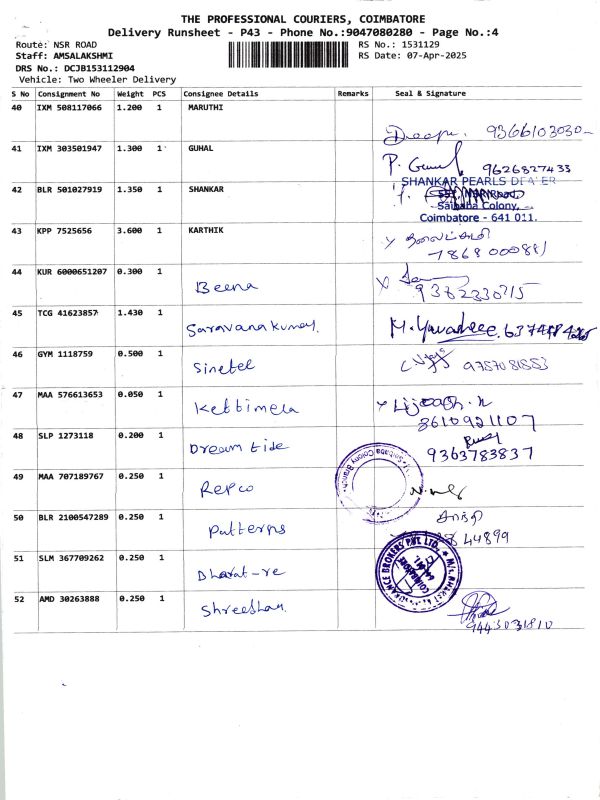 THE PROFESSIONAL COURIERS, COIMBATORE
Delivery Runsheet - P43 - Phone No.:9047080280 - Page No.:4
Route: NSR ROAD RS No.: 1531129
Staff: AMSALAKSHMI RS Date: 07-Apr-2025
DRS No.: DCJB153112904
Vehicle: Two Wheeler Delivery
S No Consignment No Weight PCS Consignee Details Remarks Seal & Signature
40 IXM 508117066 1.200 1 MARUTHI
Deepu. 9366103030
41 IXM 303501947 1.300 1 GUHAL
9626827433
42 BLR 501027919 1.350 1 SHANKAR
SHANKAR PEARLS DEALER
Saibaba Colony,
Coimbatore - 641 011.
43 KPP 7525656 3.600 1 KARTHIK
44 KUR 6000651207 0.300 1 Beena
45 TCG 41623857 1.430 1 Saravanakumar
46 GYM 1118759 0.500 1 Sinetel
47 MAA 576613653 0.050 1 Kettimela
8610921107
48 SLP 1273118 0.200 1 Dream tide
9363783837
49 MAA 707189767 0.250 1 Repco
Saibaba Colony Branch
50 BLR 2100547289 0.250 1 Patterns
44899
51 SLM 367709262 0.250 1 Bharat-re
COIMBATORE
52 AMD 30263888 0.250 1 Shreesham
9443031810